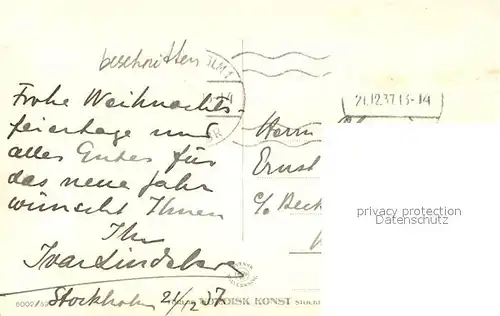 beschnitten
Frohe Weihnachts-
feiertage und
alles Gutes für
das neue Jahr
wünscht Ihnen
Ihr
Ivar Lindeberg
Stockholm 21/12 37
Herrn
Ernst
c/o Beck
21.12.37.13-14
privacy protection
Datenschutz
NORDISK KONST